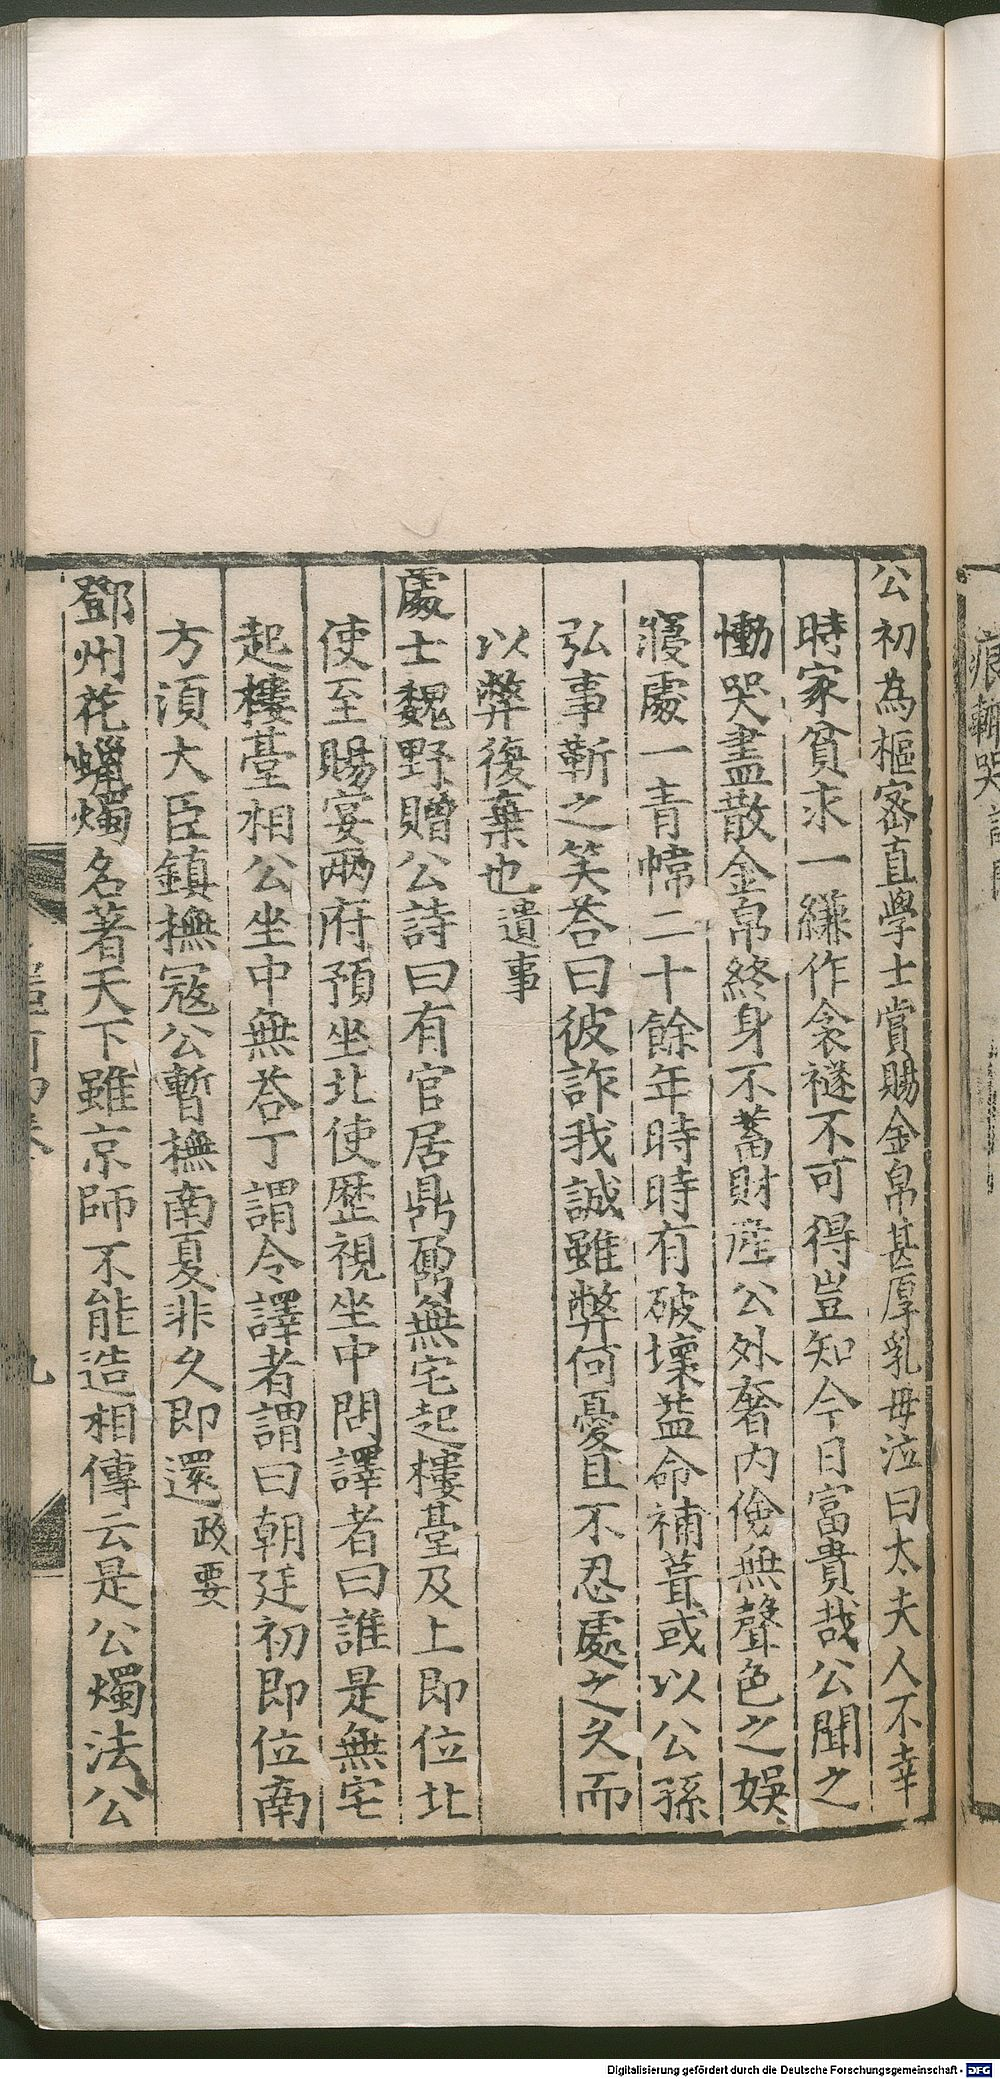 公初為樞密直學士賞賜金帛甚厚乳母泣曰太夫人不幸
時家貧求一縑作衾襚不可得豈知今日富貴哉公聞之
慟哭盡散金帛終身不蓄財産公外奢内儉無聲色之娛
寢處一青幃二十餘年時時有破壞葢命補葺或以公孫
弘事靳之笑荅曰彼詐我誠雖弊何憂且不忍處之久而
以弊復棄也遺事
處士魏野贈公詩曰有官居鼎鼐無宅起樓臺及上即位北
使至賜宴兩府預坐北使歷視坐中問譯者曰誰是無宅
起樓臺相公坐中無荅丁謂令譯者謂曰朝廷初即位南
方湏大臣鎮撫寇公暫撫南夏非久即還政要
鄧州花蠟燭名著天下雖京師不能造相傳云是公燭法公
Digitalisierung gefördert durch die Deutsche Forschungsgemeinschaft - DFG